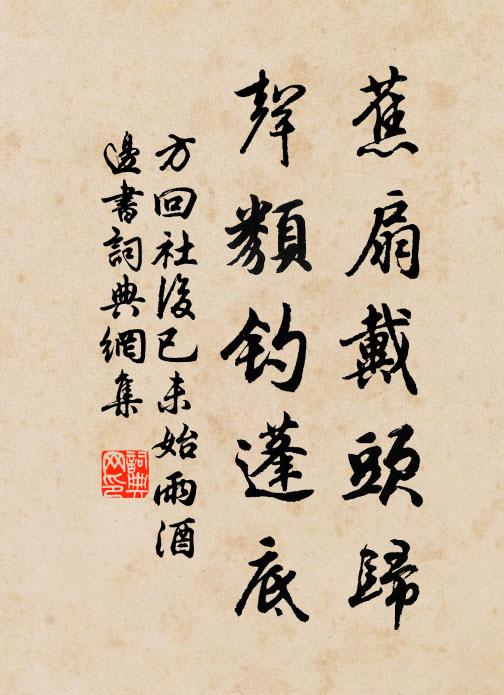 蕉扇戴頭歸
聲類釣蓬底
方回社後已未始雨酒
邊書詞典網集
詞典网印